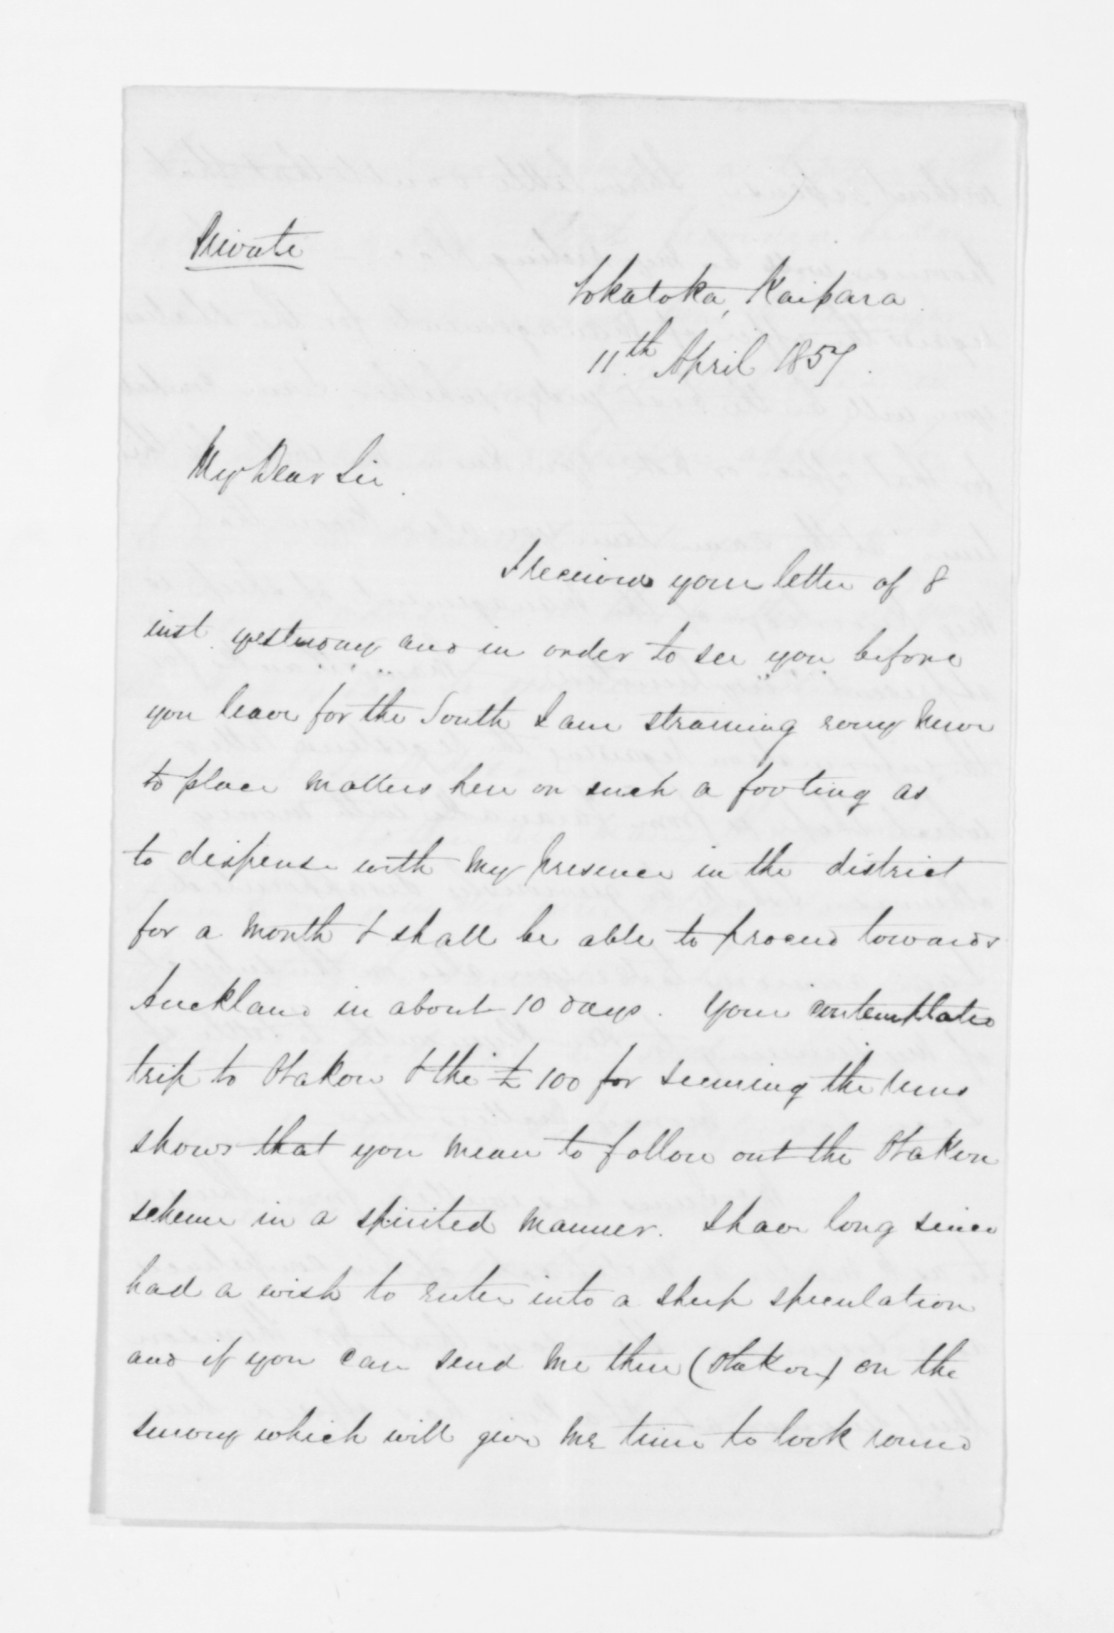 Private
Tokatoka, Kaipara.
11th April 1857.
My Dear Sir.
I received your letter of 8
inst. yesterday and in order to see you before
you leave for the South I am straining every nerve
to place matters here on such a footing as
to dispense with my presence in the district
for a month & shall be able to proceed towards
Auckland in about 10 days. Your contemplated
trip to Otakou & the £100 for securing the runs
shows that you mean to follow out the Otakou
scheme in a spirited manner. I have long since
had a wish to enter into a sheep speculation
and if you can send me there (Otakou) on the
survey which will give me time to look round